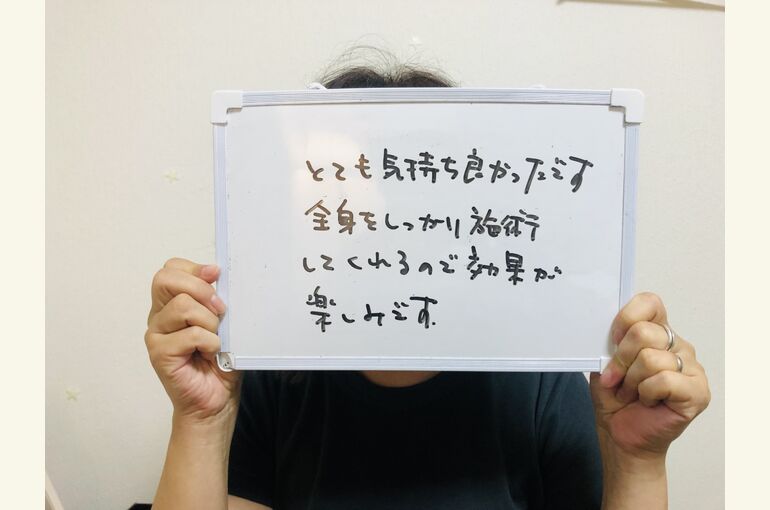 とても気持ち良かったです
全身をしっかり施術
してくれるので効果が
楽しみです.